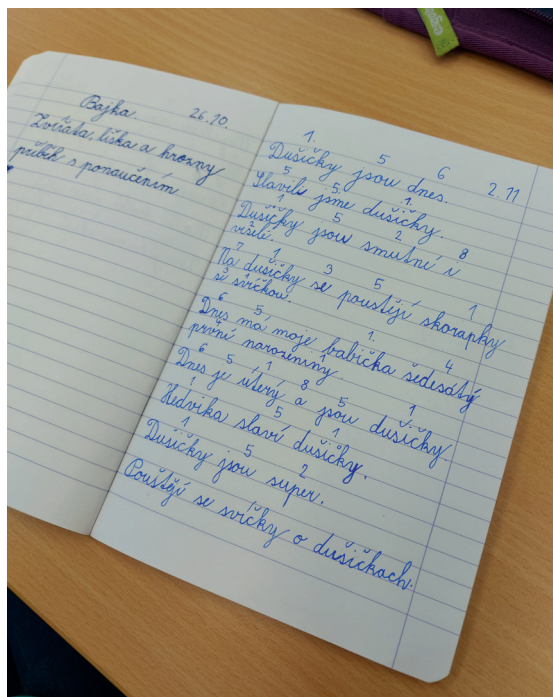 Bajka. 26.10.
Zvířata, liška a hrozny
příběh s ponaučením
1. 5 6
Dušičky jsou dnes. 2.11
5 5. 1.
Slavili jsme dušičky.
1 5 2 8
Dušičky jsou smutné i
veselé.
7 1 3 5 1
Na dušičky se pouštějí skorapky
se svíčkou.
6 5. 1. 4
Dnes má moje babička šedesátý
první narozeniny.
6 5 1 8 5 1
Dnes je úterý a jsou dušičky.
1 5 1
Hedvika slaví dušičky.
1 5 2
Dušičky jsou super.
Pouštějí se svíčky o dušičkach.